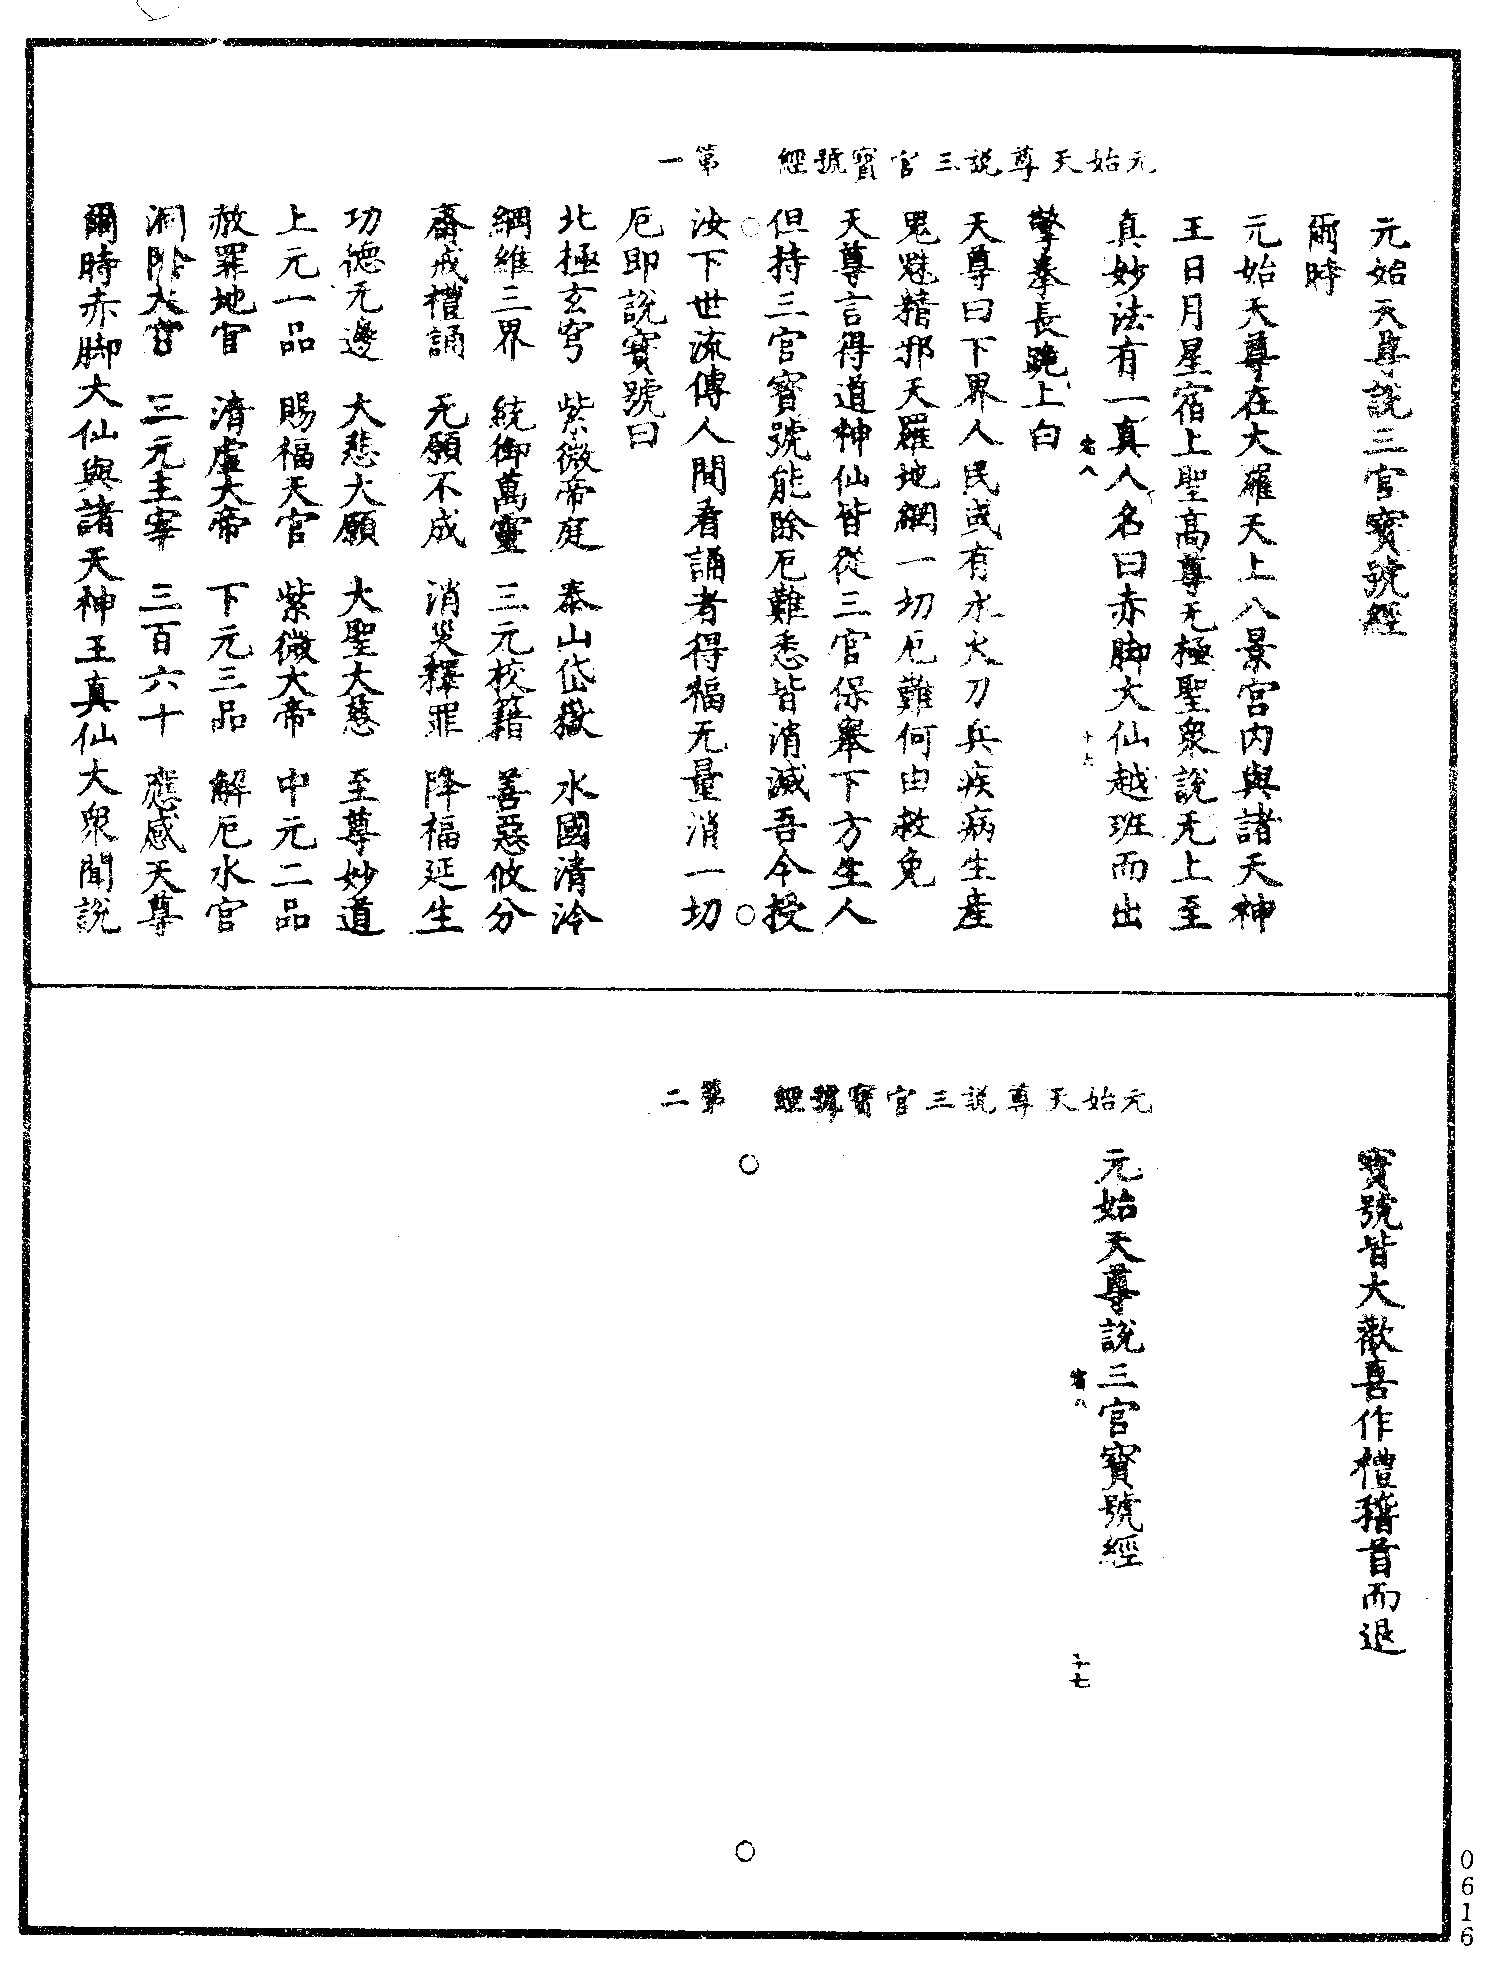 元始天尊說三官寶號經　第一
元始天尊說三官寶號經
爾時
元始天尊在大羅天上八景宮內與諸天神
王日月星宿上聖高尊无極聖衆說无上至
真妙法有一真人名曰赤脚大仙越班而出
容八
十六
擎拳長跪上白
天尊曰下界人民或有水火刀兵疾病生産
鬼魅精邪天羅地網一切厄難何由救免
天尊言得道神仙皆從三官保舉下方生人
但持三官寶號能除厄難悉皆消滅吾今授
汝下世流傳人間看誦者得福无量消一切
厄即說寶號曰
北極玄穹　紫微帝庭　泰山岱嶽　水國清泠
綱維三界　統御萬靈　三元校籍　善惡攸分
齋戒禮誦　无願不成　消災釋罪　降福延生
功德无邊　大悲大願　大聖大慈　至尊妙道
上元一品　賜福天官　紫微大帝　中元二品
赦罪地官　清虛大帝　下元三品　解厄水官
洞陰大帝　三元主宰　三百六十　應感天尊
爾時赤脚大仙與諸天神王真仙大衆聞說
元始天尊說三官寶號經　第二
寶號皆大歡喜作禮稽首而退
元始天尊說三官寶號經
容八
十七
0616